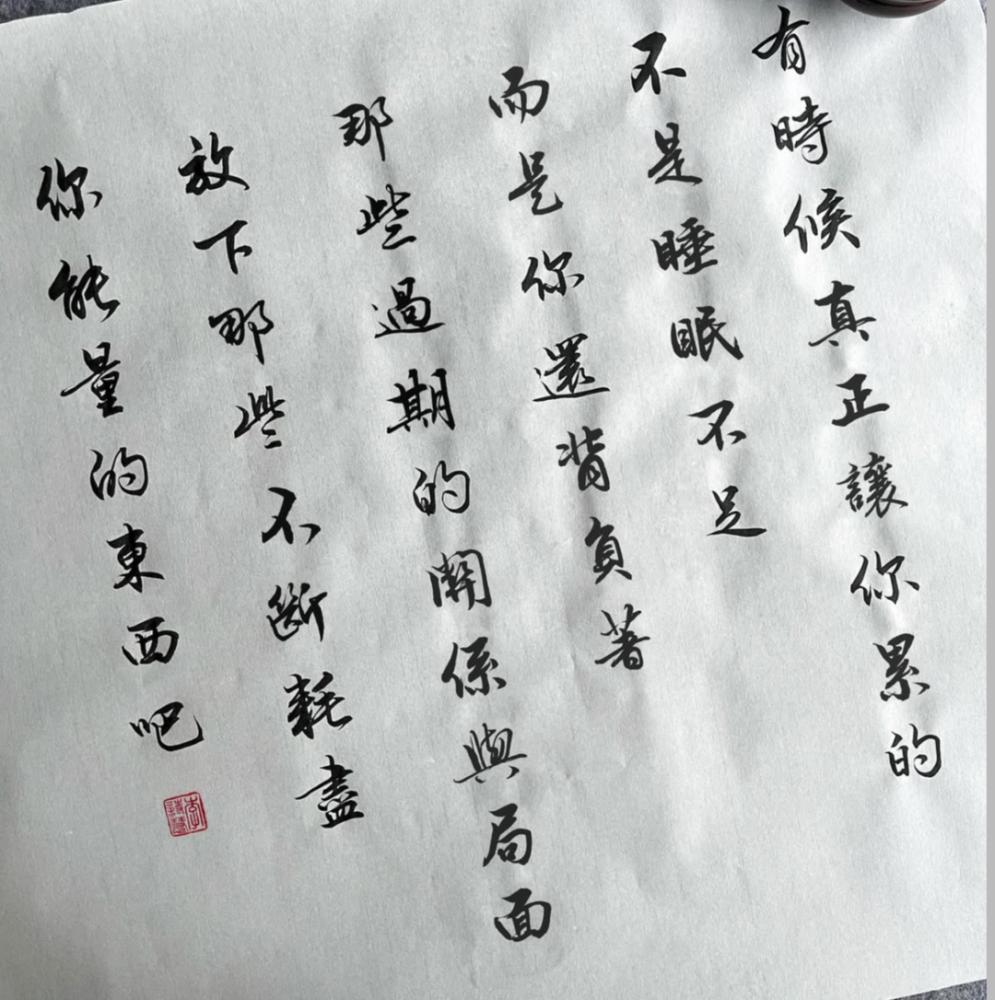 有時候真正讓你累的
不是睡眠不足
而是你還背負著
那些過期的關係與局面
放下那些不斷耗盡
你能量的東西吧